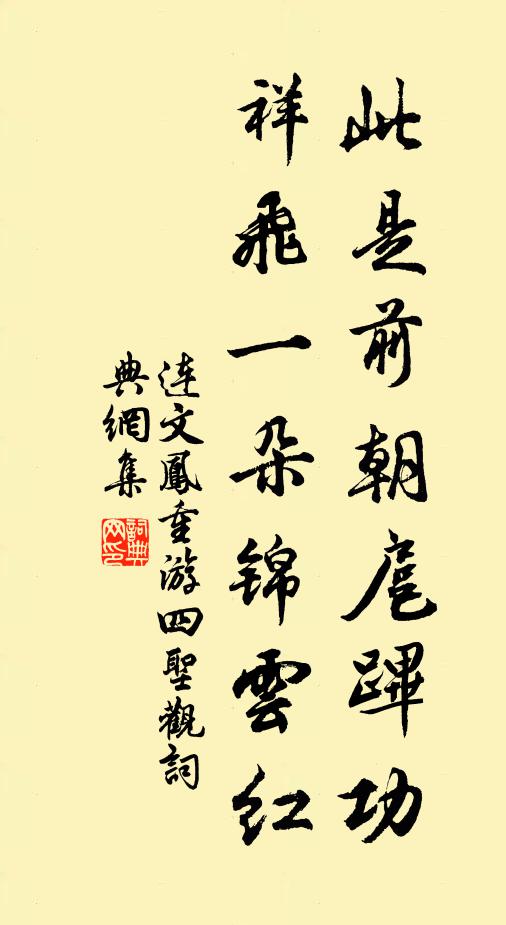 此是前朝扈蹕功
祥飛一朵錦雲紅
連文鳳重游四聖觀詞
典網集
詞典
网印